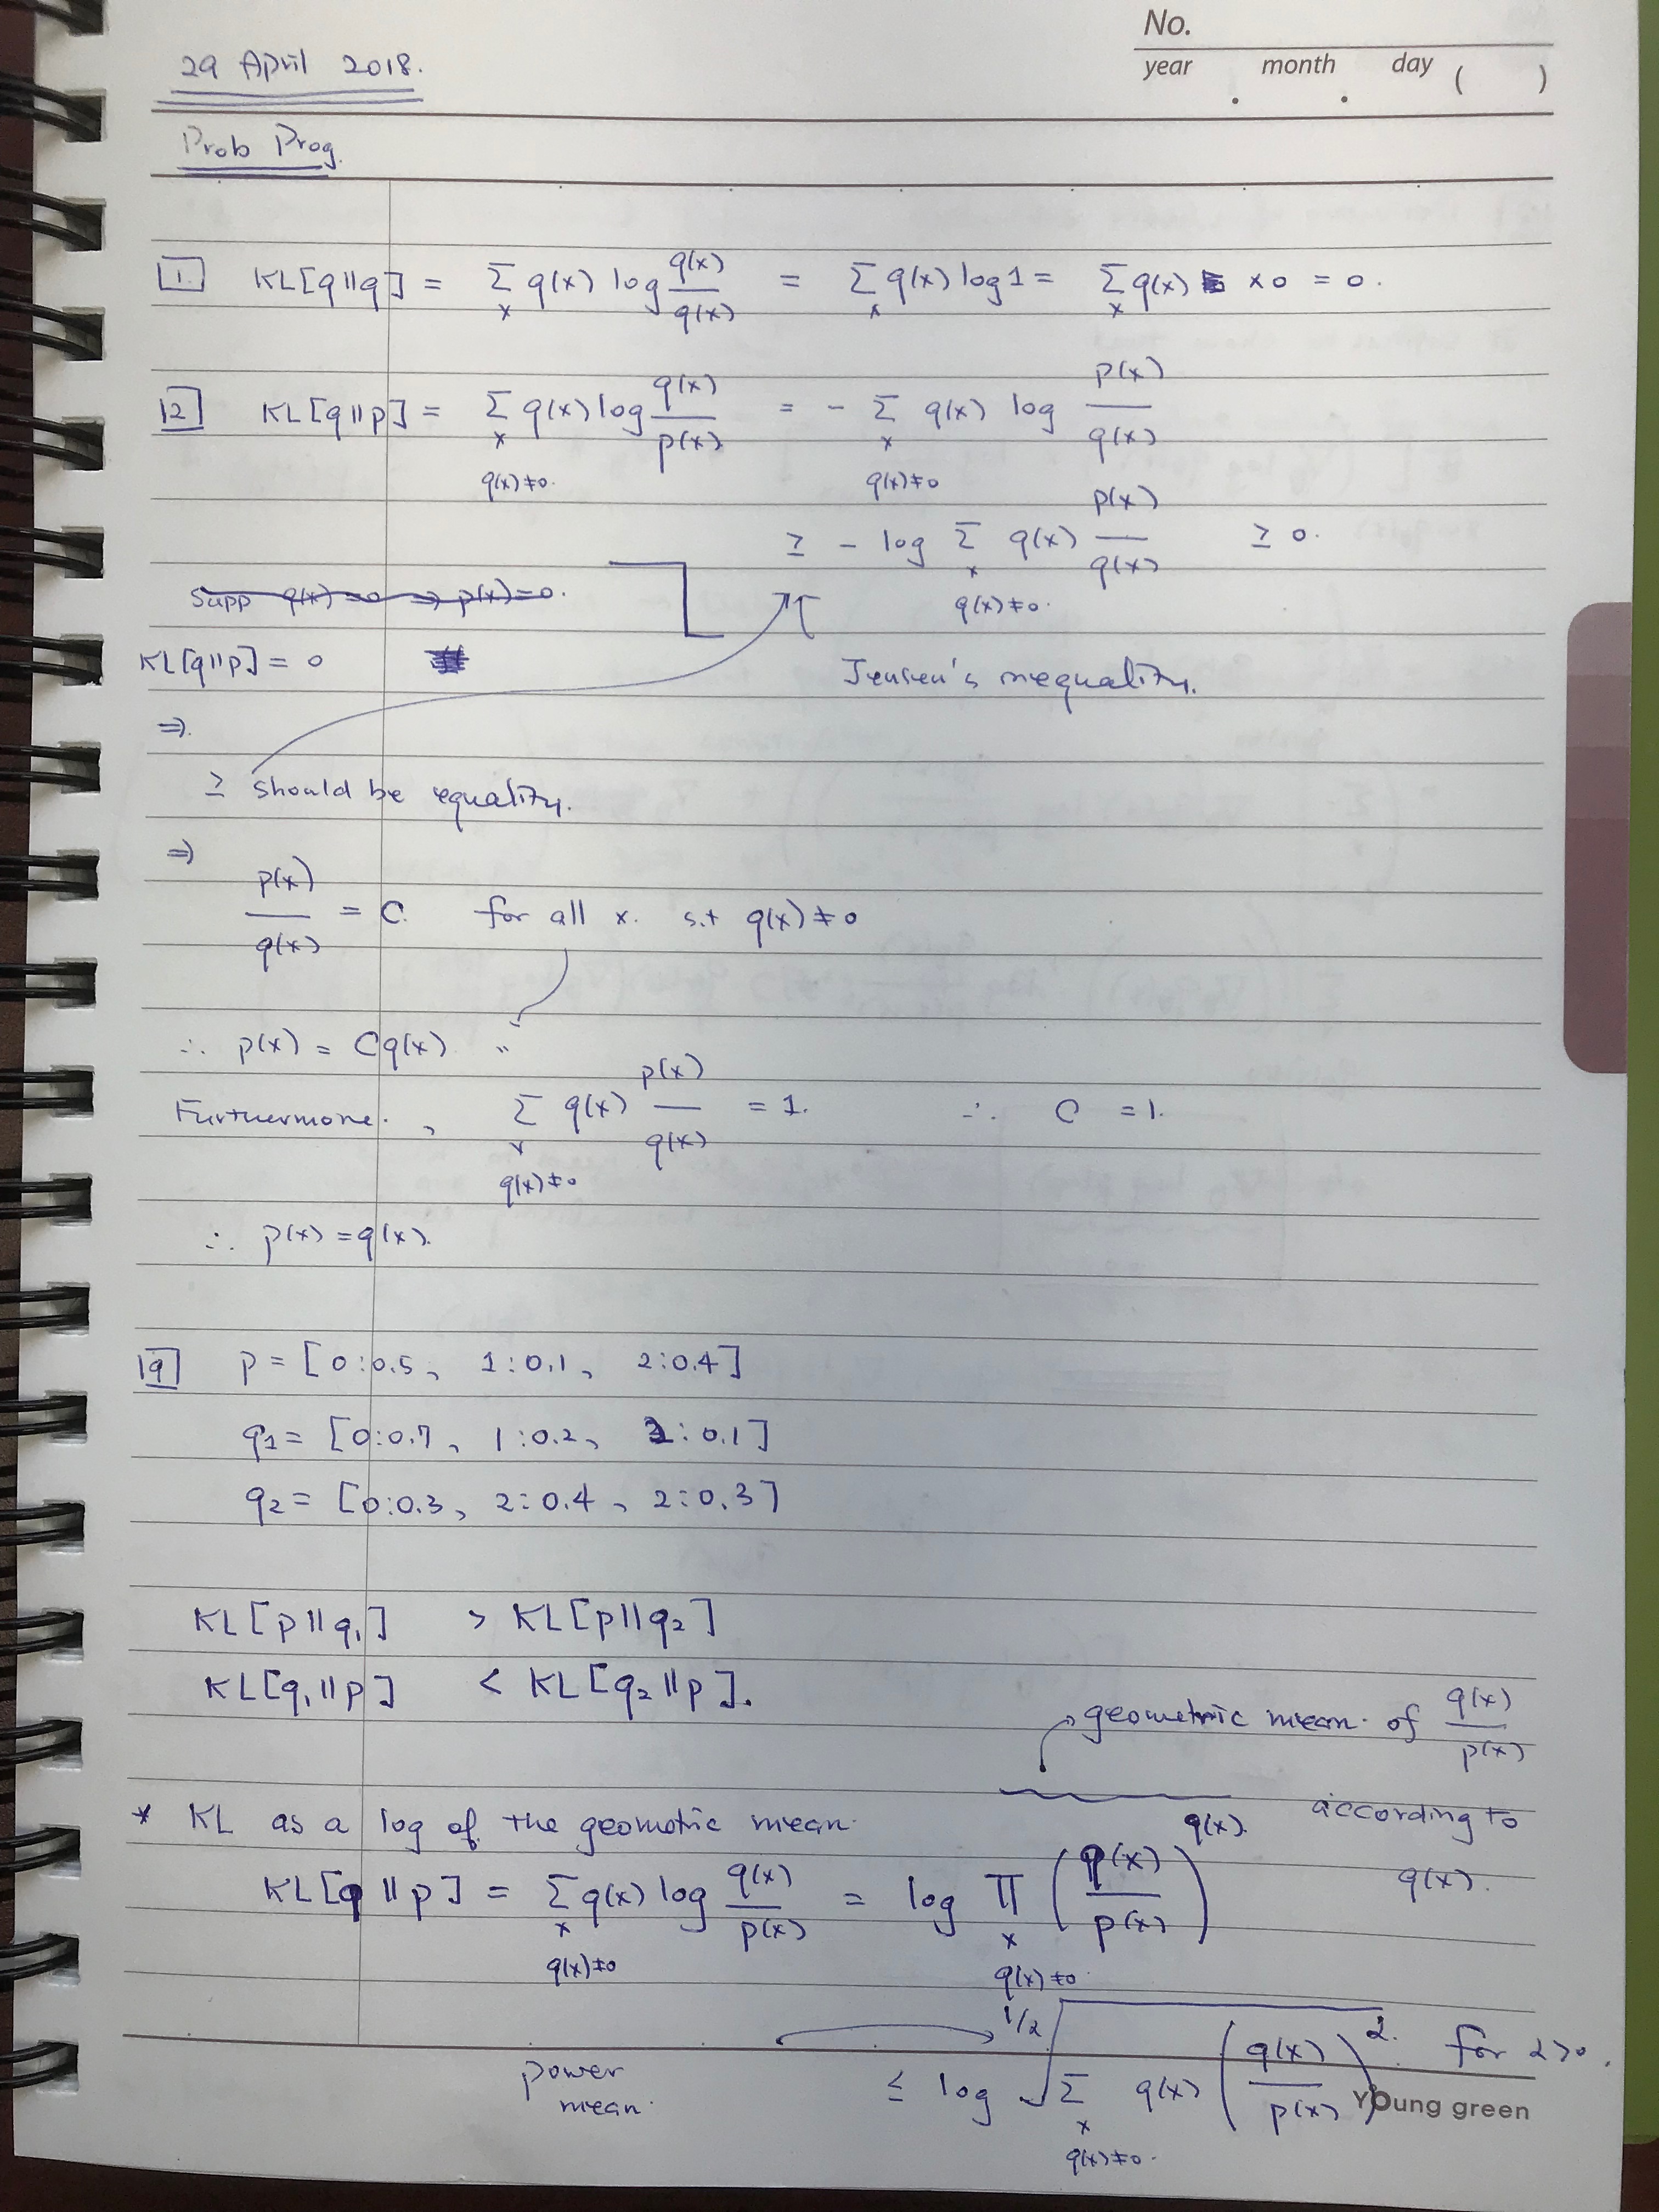 No.
year month day ( )
29 April 2018.
Prob Prog.
1. KL[q||q] = Σ_x q(x) log q(x)/q(x) = Σ_x q(x) log 1 = Σ_x q(x) × 0 = 0.
12 KL[q||p] = Σ_{x q(x)≠0.} q(x) log q(x)/p(x) = - Σ_{x q(x)≠0} q(x) log p(x)/q(x)
≥ - log Σ_{x q(x)≠0.} q(x) p(x)/q(x) ≥ 0.
Supp q(x)=0 ⇒ p(x)=0.
KL[q||p] = 0
Jensen's inequality.
⇒.
≥ should be equality.
⇒
p(x)/q(x) = C. for all x. s.t q(x)≠0
∴ p(x) = Cq(x) "
Furthermore, Σ_{x q(x)≠0} q(x) p(x)/q(x) = 1. ∴ C = 1.
∴ p(x) = q(x).
19 p = [0:0.5, 1:0.1, 2:0.4]
q1 = [0:0.7, 1:0.2, 2:0.1]
q2 = [0:0.3, 2:0.4, 2:0.3]
KL[p||q1] > KL[p||q2]
KL[q1||p] < KL[q2||p].
geometric mean of q(x)/p(x)
according to
q(x).
* KL as a log of the geometric mean.
KL[q||p] = Σ_{x q(x)≠0} q(x) log q(x)/p(x) = log Π_{x q(x)≠0} (q(x)/p(x))^{q(x).}
power mean.
≤ log ^{1/α}√Σ_{x q(x)≠0.} q(x) (q(x)/p(x))^α. for α>0.
Young green